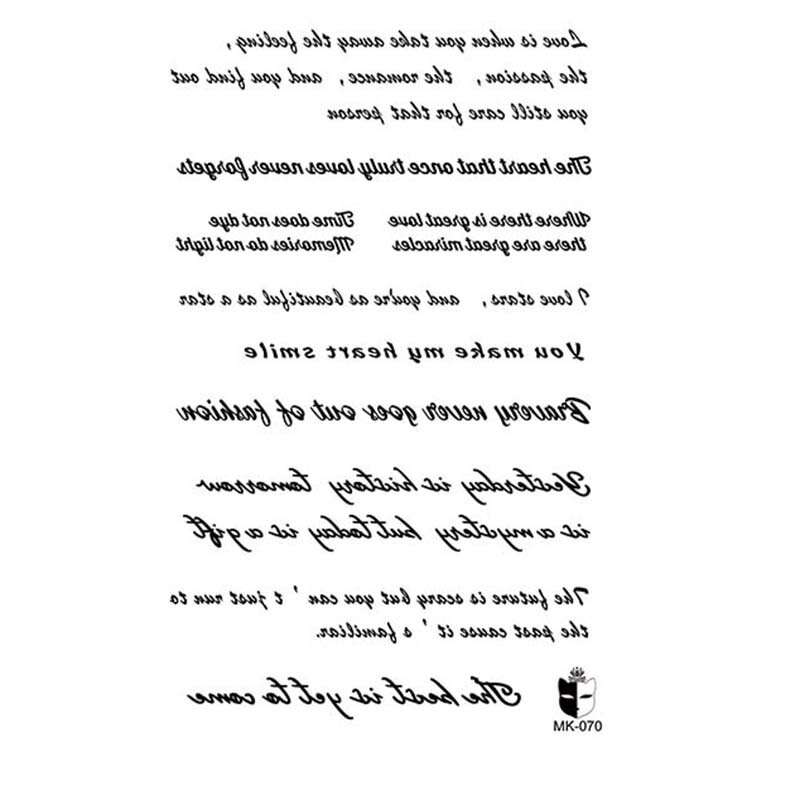 Love is when you take away the feeling,
the passion, the romance, and you find out
you still care for that person
The heart that once truly loves never forgets
Where there is great love
there are great miracles
Time does not dye
Memories do not light
I love stars, and you're as beautiful as a star
You make my heart smile
Bravery never goes out of fashion
Yesterday is history tomorrow
is a mystery but today is a gift
The future is scary but you can't just run to
the past cause it's familiar.
The best is yet to come
MK-070